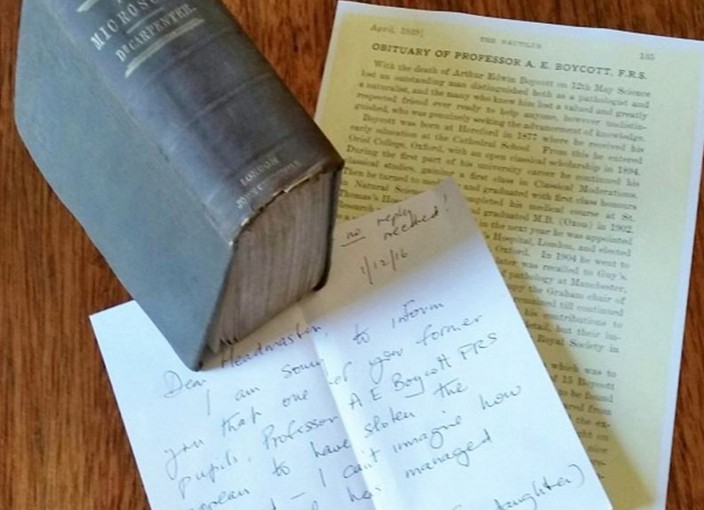 MICROSC
DR CARPENTER.
LONDON
April,
THE NAUTILUS
135
OBITUARY OF PROFESSOR A. E. BOYCOTT, F.R.S.
With the death of Arthur Edwin Boycott on 12th May Science
lost an outstanding man distinguished both as a pathologist and
a naturalist, and the many who knew him lost a valued and greatly
respected friend ever ready to help anyone, however undistin-
guished, who was genuinely seeking the advancement of knowledge.
Boycott was born at Hereford in 1877 where he received his
early education at the Cathedral School. From this he entered
Oriel College, Oxford, with an open classical scholarship in 1894.
During the first part of his university career he continued his
classical studies, gaining a first class in Classical Moderations.
Then he turned to and graduated with first class honours
in Natural Scien completed his medical course at St.
Thomas's Hos graduated M.D. (Oxon) in 1902.
Research in the next year he was appointed
's Hospital, London, and elected
Oxford. In 1904 he went to
later was recalled to Guy's.
of pathology at Manchester,
py the Graham chair of
remained till continued
his contributions to
detail, but their im-
Royal Society in
which was to
of 15 Boycott
to be found
ared from
the ex-
ght on
no reply
needed!
1/12/16
Dear Headmaster,
I am sorry to inform
you that one of your former
pupils, Professor A E Boycott FRS
appears to have stolen the
– I can't imagine how
he has managed
daughter)